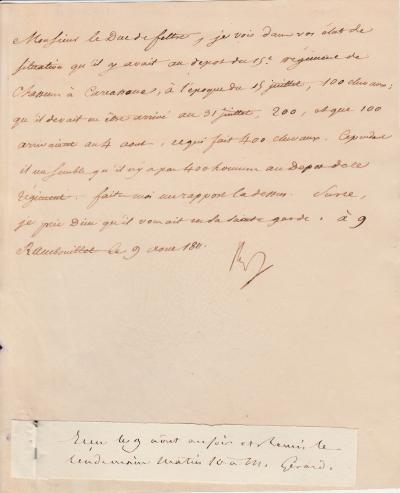 Monsieur le Duc de feltre, je vois dans vos états de
situation qu'il y avait au depot du 15e régiment de
Chasseurs à Carcassonne, à l'époque du 15 juillet, 100 chevaux;
qu'il devait en être arrivé au 31 juillet, 200, et que 100
arrivaient au 4 aout, ce qui fait 400 chevaux. Cependant
il me semble qu'il n'y a pas 400 hommes au Depot de ce
régiment. faites moi un rapport la dessus. Sur ce,
je prie Dieu qu'il vous ait en sa sainte garde. à
Rambouillet le 9 aout 181
Reçu le 9 août au soir et Remis le
lendemain Matin 10 à M. Gerard.